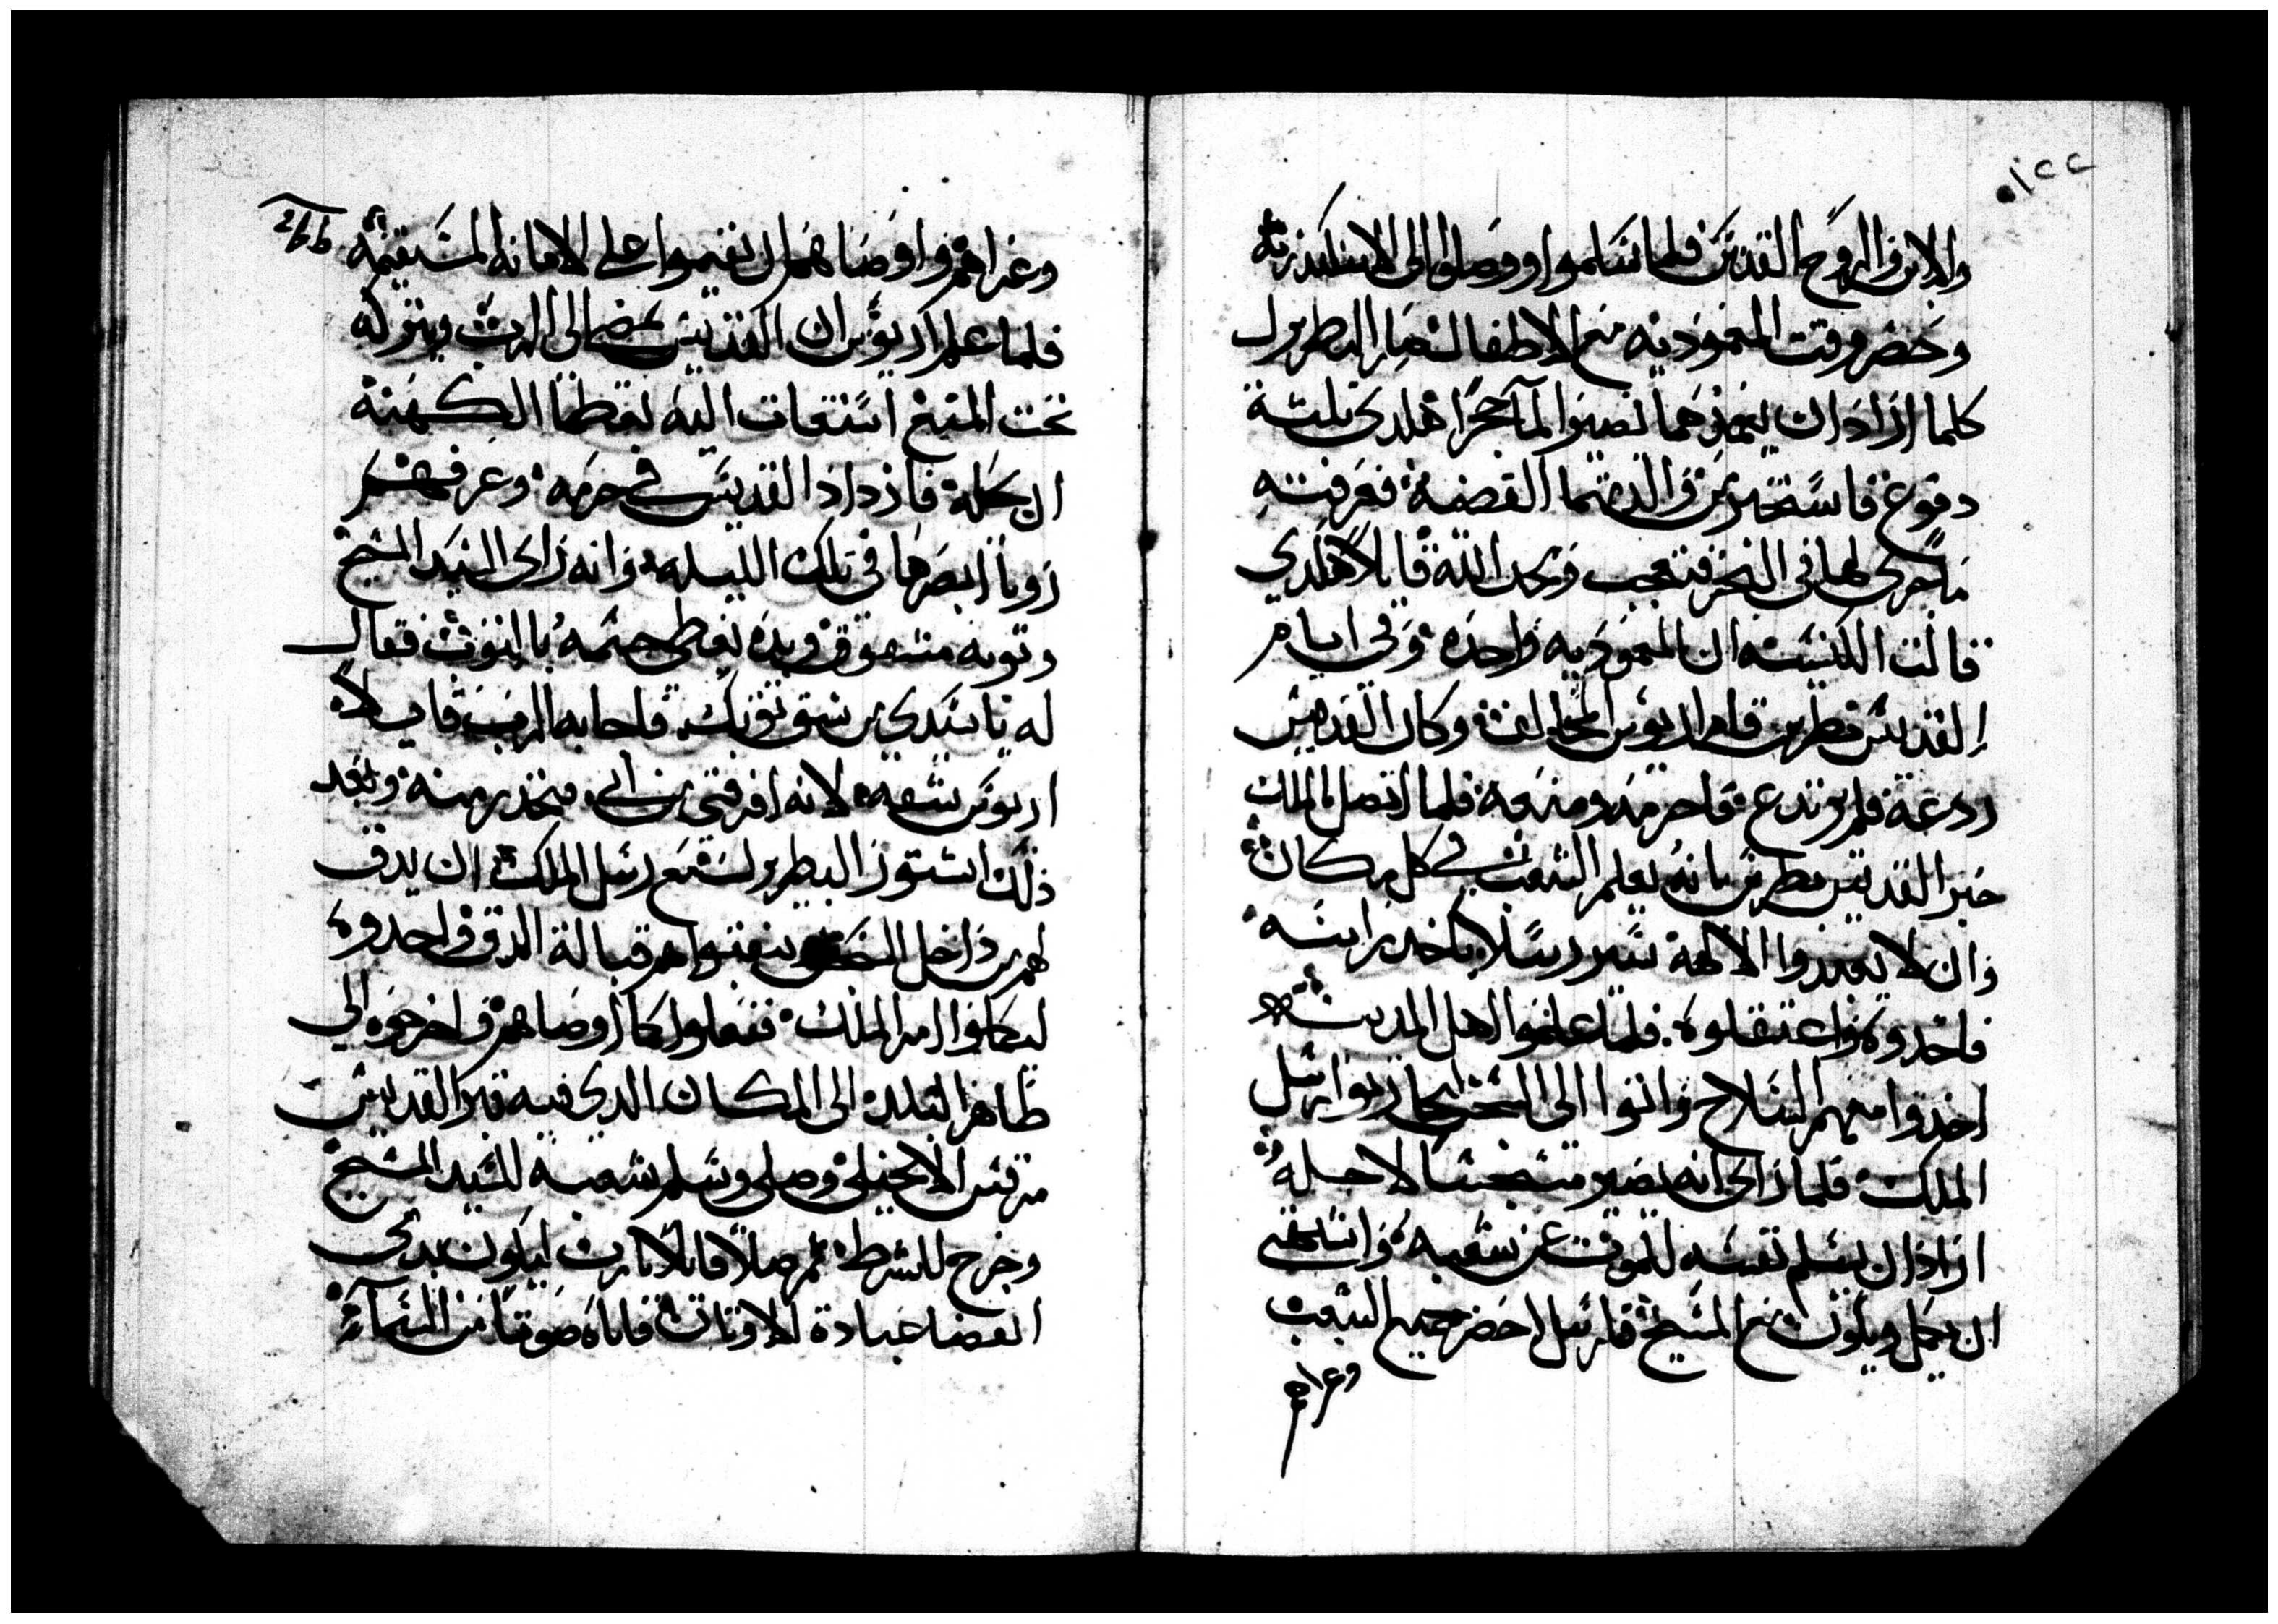 ١٢٢
والابن والروح القدس فلما سلموا ووصلوا الى الاسكندرية
وحضر وقت المعمودية مع الاطفال صار البطريرك
كلما اراد ان يعمدهما تصير الما حجرا هكدى تلتة
دفوع فاستخبر من والدتهما القضية فعرفته
ما جرى لها في البحر فتعجب ومجد الله قايلا هكدي
قالت الكنيسه ان المعمودية واحده وفي ايام
القديس بطرس قام اريوس المخالف وكان القديس
ردعة فلم يرتدع فاحرمه ومنعه فلما اتصل بالملك
خبر القديس بطرس بانه يعلم الشعب في كل مكان
وان لا يعبدوا الالهة سير رسلا ياخد راسه
فاخدوه واعتقلوه فلما علموا اهل المدينة
اخدوا معهم السلاح واتوا الى السجن ليحاربوا رسل
الملك فلما راى انه يصير متسجسا لاجله
اراد ان يسلم نفسه للموت عن شعبه واشتهى
ان يحل ويكون مع المسيح فارسل احضر جميع الشعب
وعزاهم
وعزاهم واوصاهم ان يقيموا على الامانه المستقيمة
فلما علم اريوس ان القديس يمضى الى الرب ويتركه
تحت المنع استغات اليه بعظما الكهنة
ان يحله فازداد القديس في حرمه وعرفهم
رويا ابصرها في تلك الليله وانه راى السيد المسيح
وتوبه مشقوق وبيده يغطى جسمه بالتوب فقال
له يا سيدي من شق توبك فاجابه الرب قايلا
اريوس شقه لانه افرقني من ابي فتحدر منه وبعد
ذلك استشور البطريرك مع رسل الملك ان يدق
لهم من داخل السجن ينقبوا هم قبالة الدق وياخدوه
ليكملوا امر الملك ففعلوا كما اوصاهم واخرجوه الى
ظاهر البلد الى المكان الدي فيه قبر القديس
مرقس الانجيلى وصلى وسلم شعبه للسيد المسيح
وخرج للشرط ثم صلا قايلا يا رب ليكون بدمى
انقضا عبادة الاوتان فاتاه صوتا من السماء